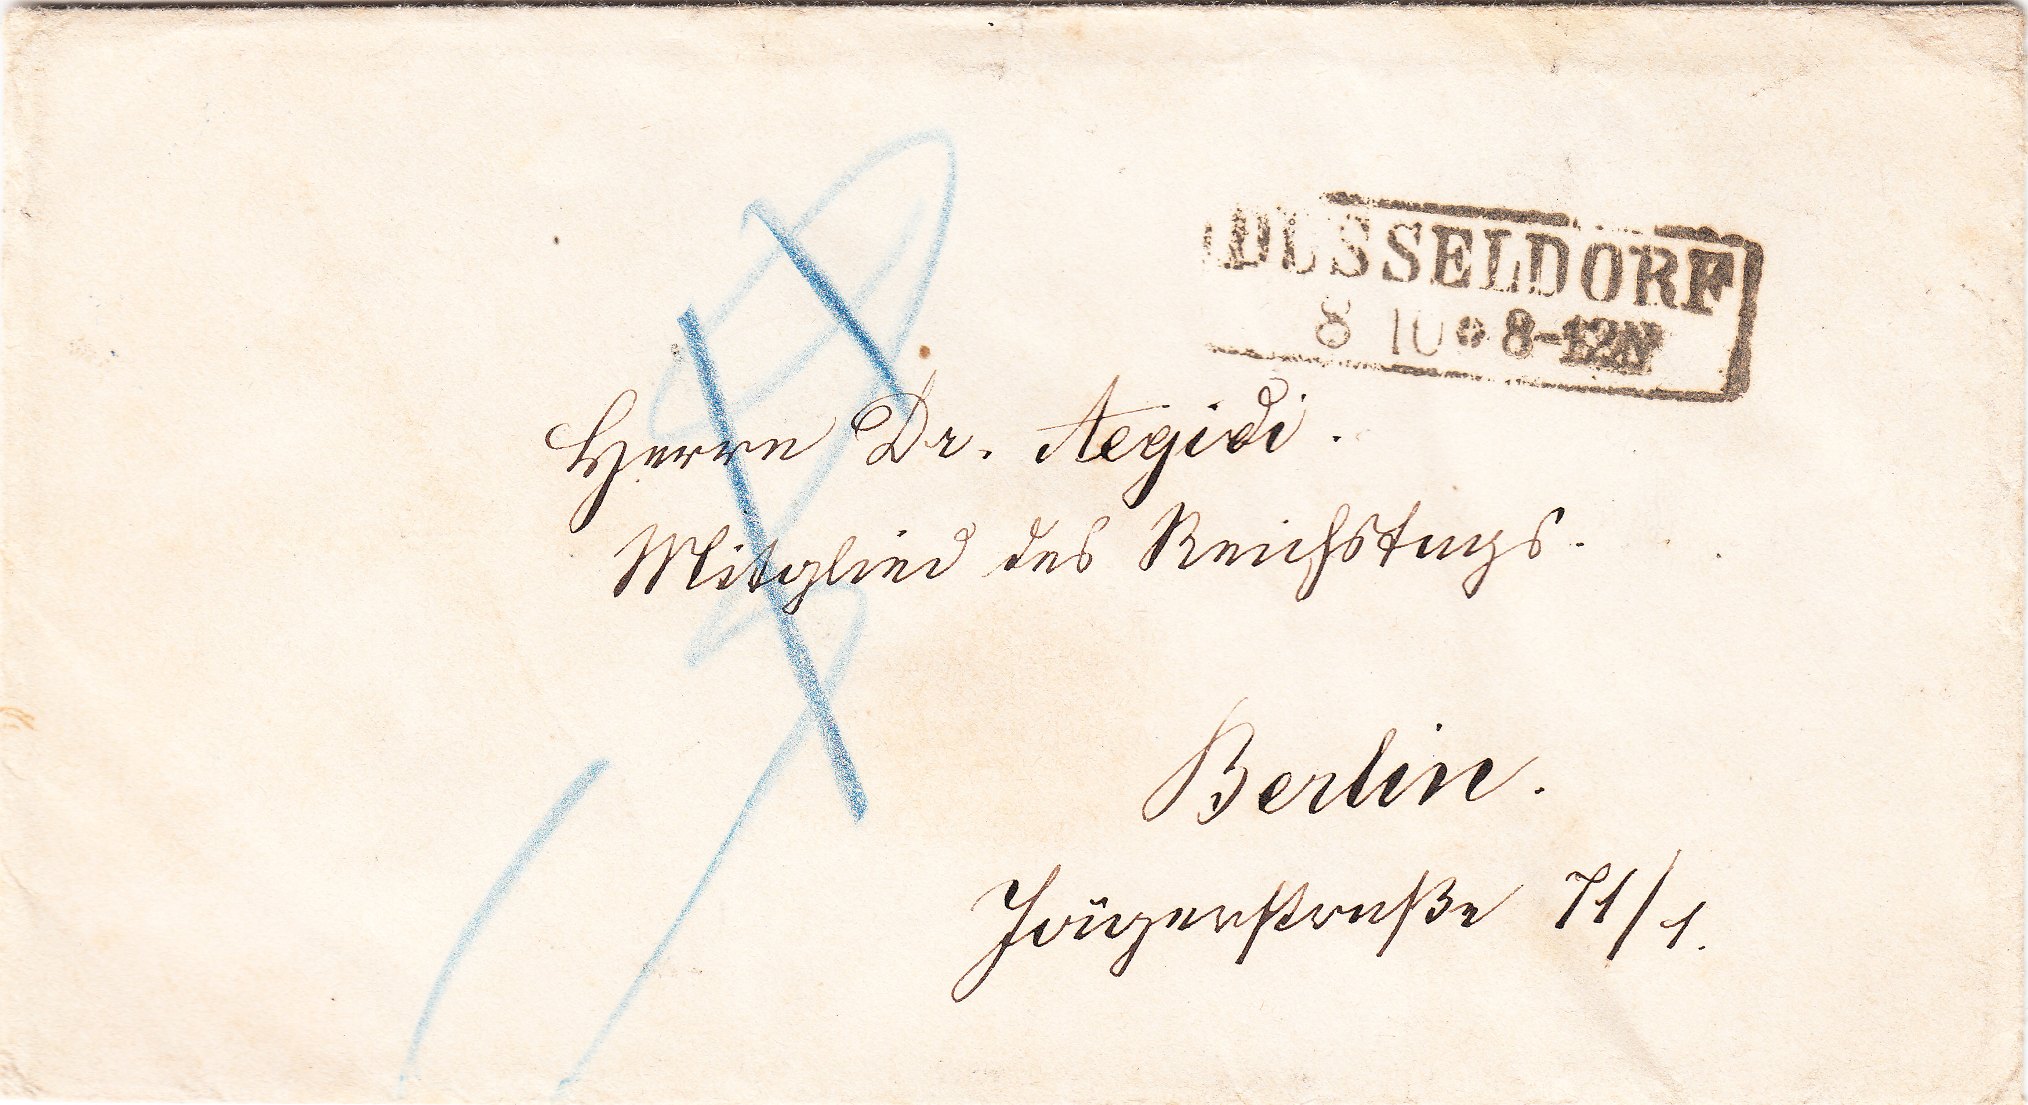 DUSSELDORF
8 10 8-12N
Herrn Dr. Aegidi.
Mitglied des Reichstags.
Berlin.
Jägerstraße 71/1.